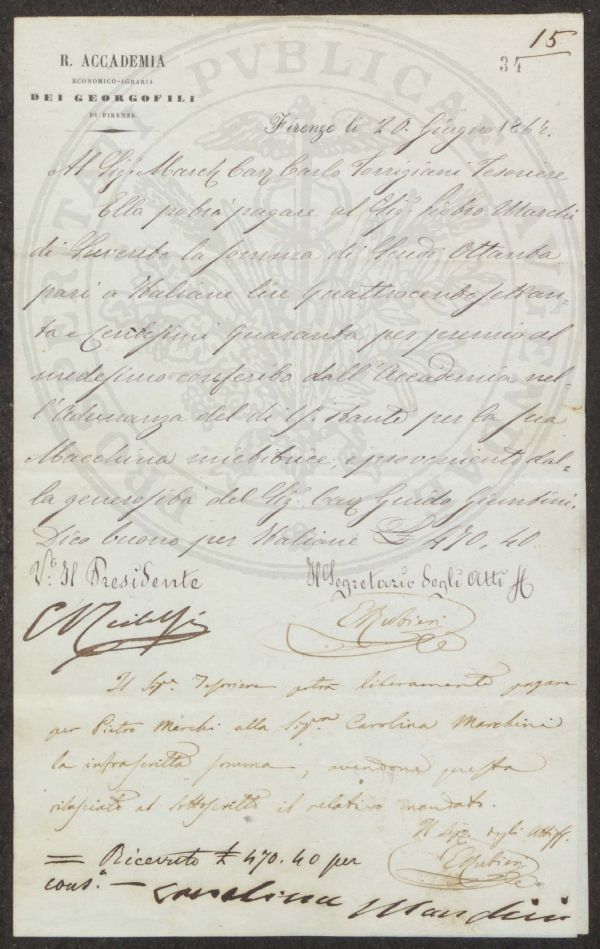 15
34
R. ACCADEMIA
ECONOMICO-AGRARIA
DEI GEORGOFILI
DI FIRENZE
PROSPERITATI PVBLICAE AVGENDAE
Firenze li 20. Giugno 1864.
Al Sig. March Cav Carlo Torrigiani Tesoriere
Ella potrà pagare al Sig. Pietro Marchi
di la somma di Scudi Ottanta
pari a Italiane lire Quattrocentosettan-
ta e Centesimi quaranta per premio al
medesimo conferito dall'Accademia nel-
l'Adunanza del dì Stante per la sua
Macchina mietitrice, e proveniente dal-
la generosità del Sig. Cav Guido Giuntini.
Dico buono per Italiane £ 470,40.
V.º Il Presidente
Il Segretario degli Atti
C Ridolfi
E Rubieri
Il Sigr. Tesoriere potrà liberamente pagare
per Pietro Marchi alla Sigra. Carolina Marchini
la infrascritta somma, avendone questa
rilasciato al sottoscritto il relativo mandato.
Il Seg. degli Atti
E Rubieri
= Ricevuto £ 470.40 per
cons.a —
Carolina Marchini